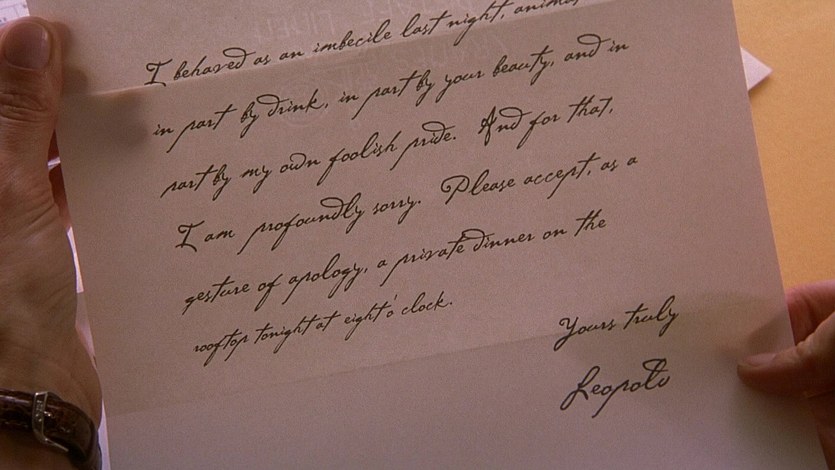 I behaved as an imbecile last night,
in part by drink, in part by your beauty, and in
part by my own foolish pride. And for that,
I am profoundly sorry. Please accept, as a
gesture of apology, a private dinner on the
rooftop tonight at eight o'clock.
Yours truly
Leopold